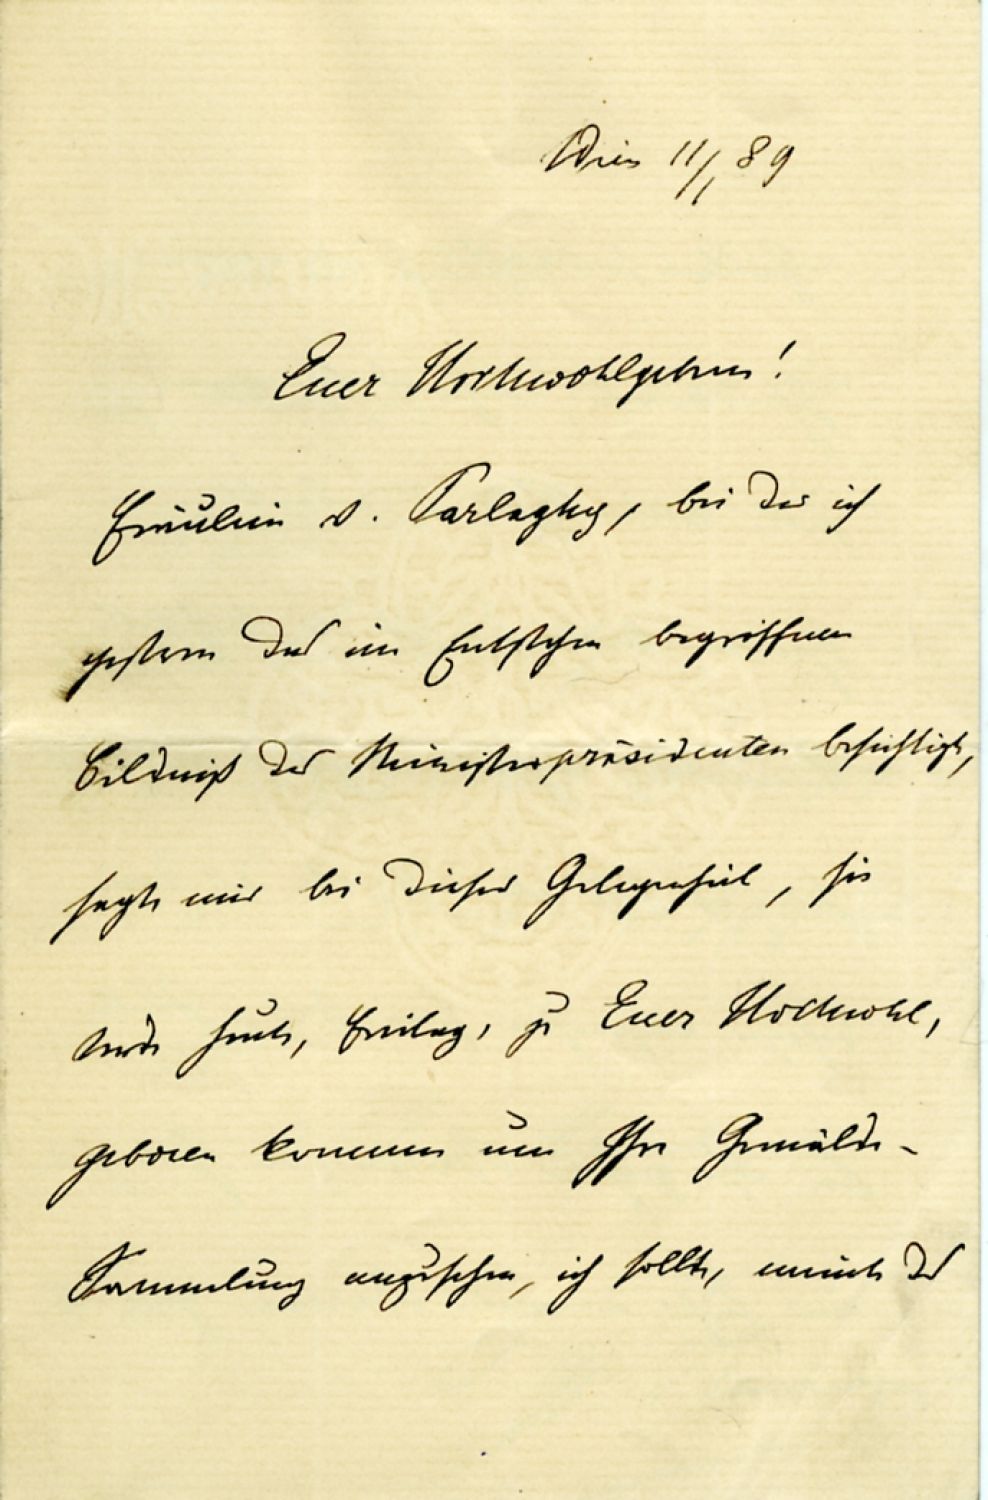 Wien 11/1 89
Euer Hochwohlgeboren!
Fräulein v. Parlaghy, bei der ich
gestern das im Entstehen begriffene
Bildniß des Ministerpräsidenten besichtigte,
sagte mir bei dieser Gelegenheit, sie
werde heute, Freitag, zu Euer Hochwohl,
geboren kommen um Ihre Gemälde-
Sammlung anzusehen, ich sollte, meinte